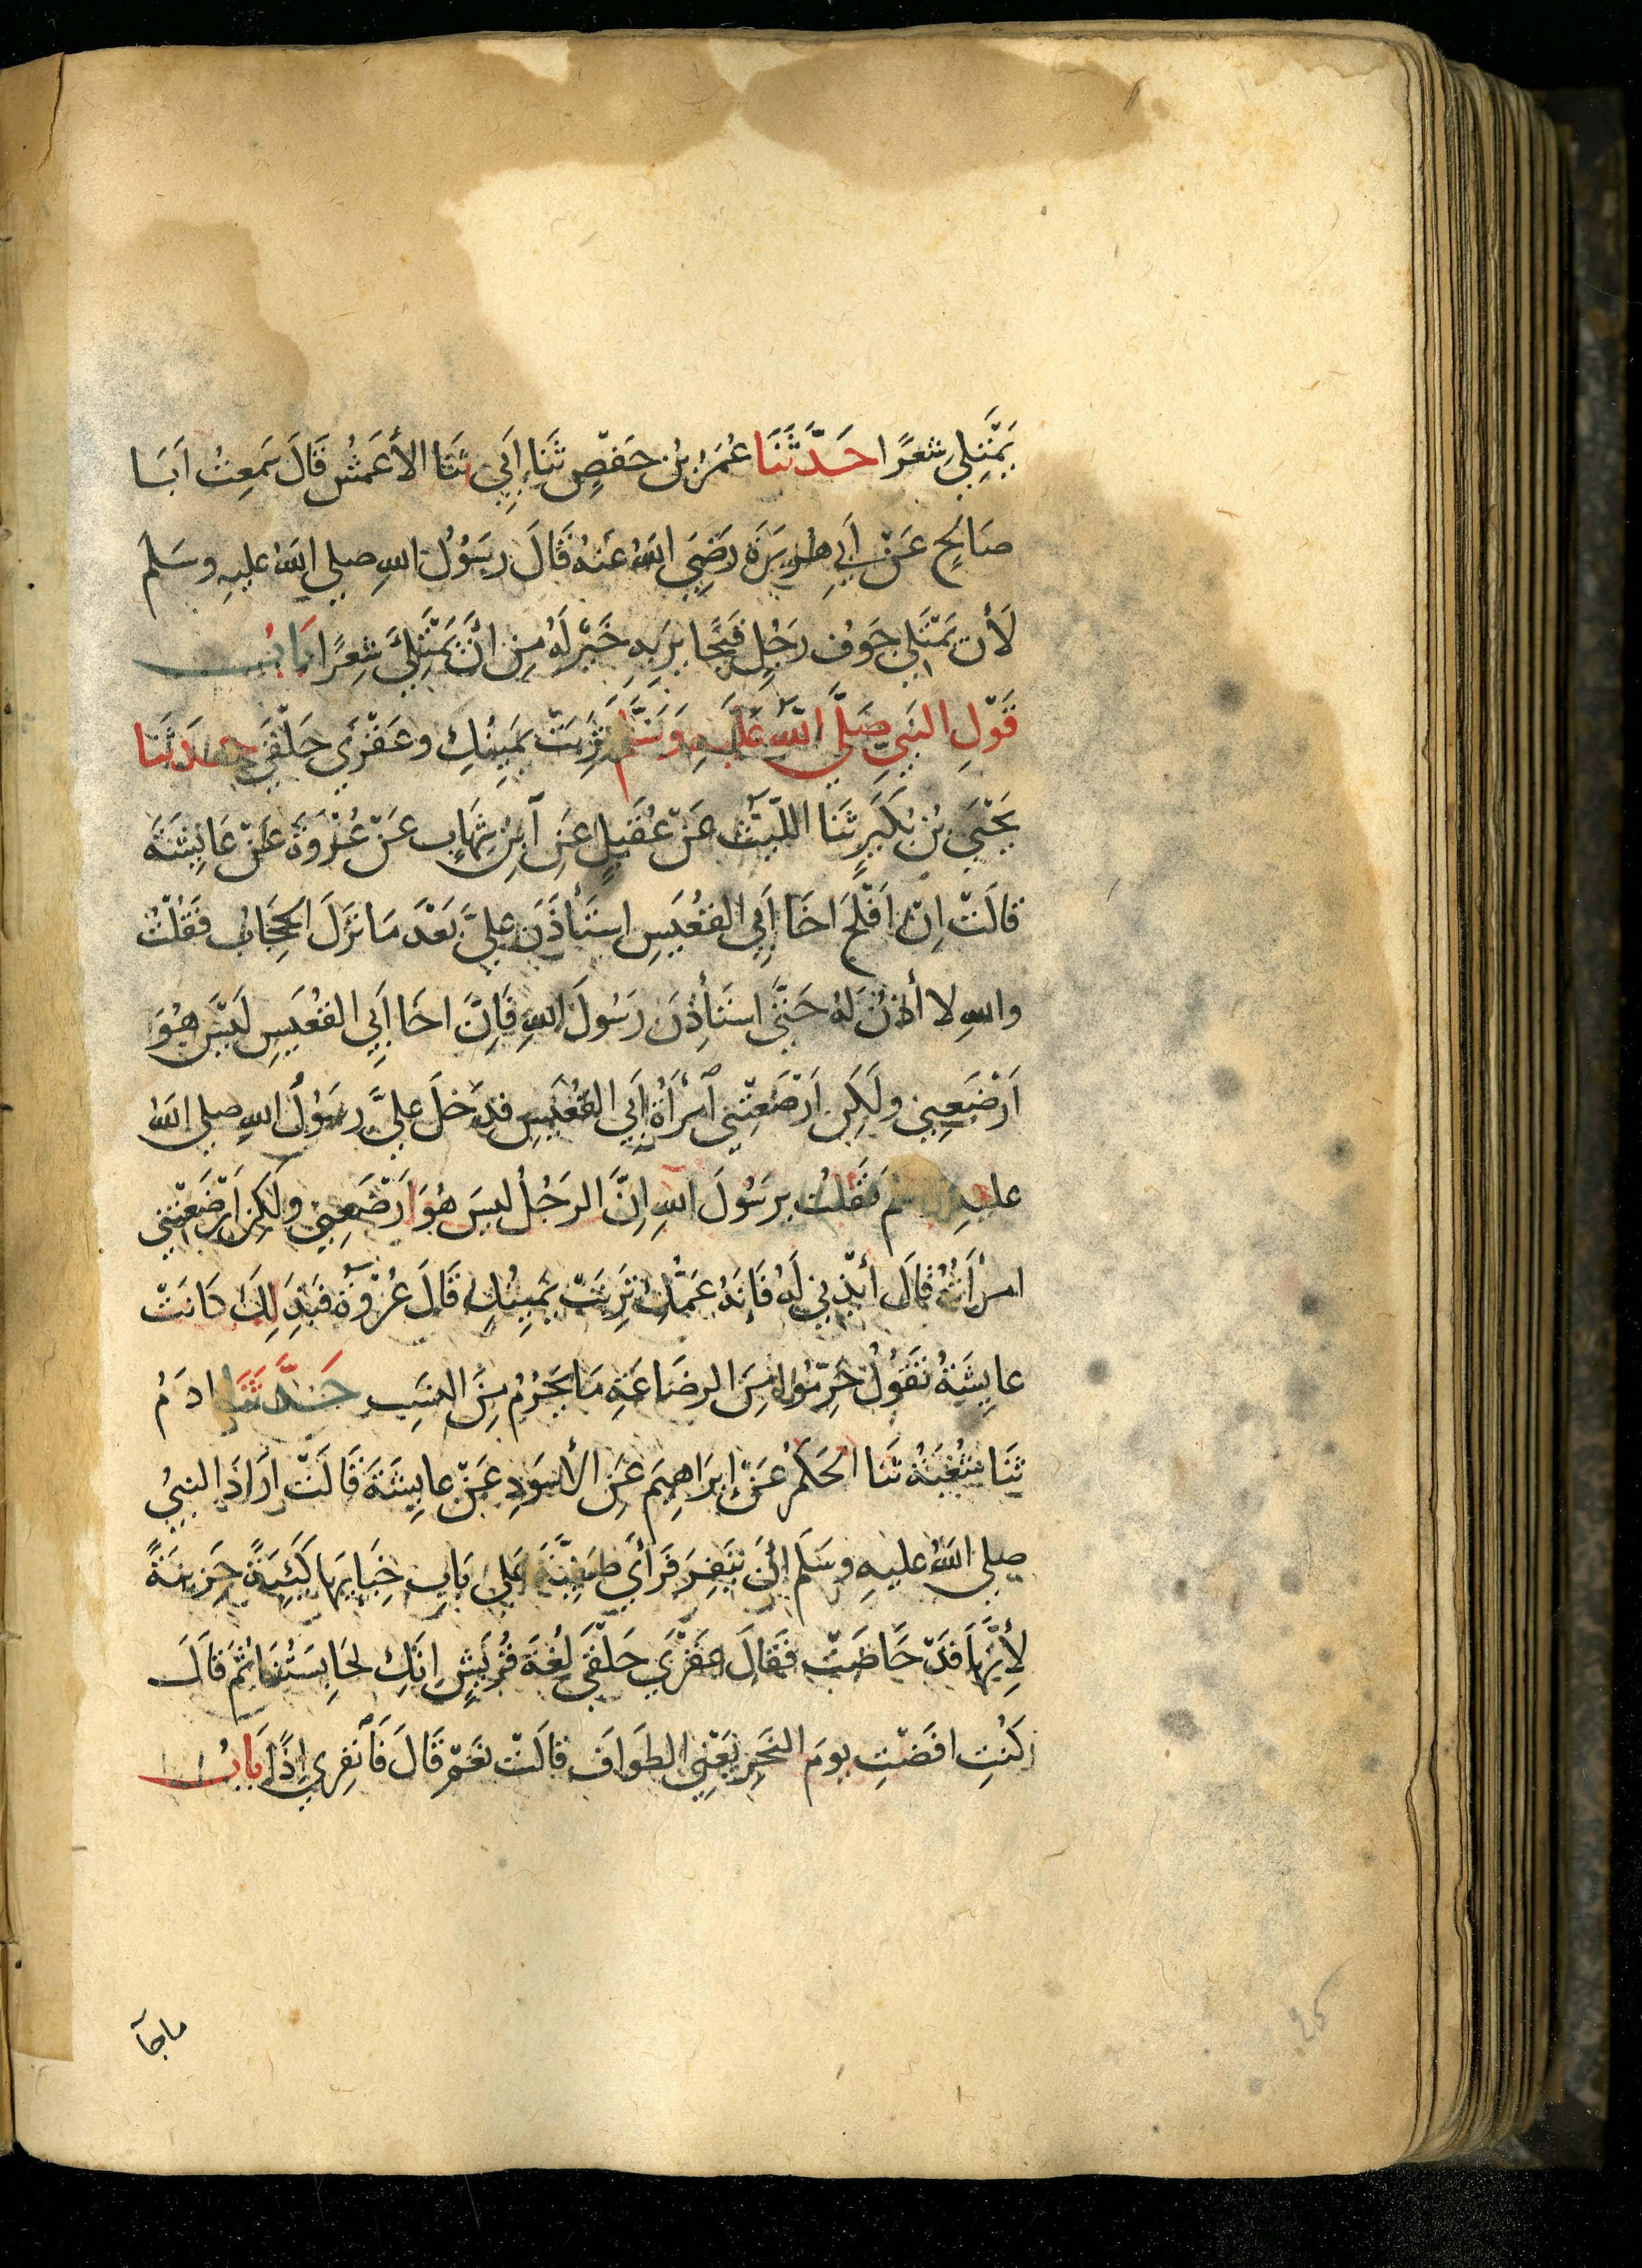 يَمْتَلِي شِعْرًا حَدَّثَنَا عُمَرُ بْنُ حَفْصٍ ثَنَا أَبِي ثَنَا الأَعْمَشُ قَالَ سَمِعْتُ اَبَا
صَالِحٍ عَنْ أَبِي هُرَيْرَةَ رَضِيَ اللهُ عَنْهُ قَالَ رَسُولُ اللهِ صلي الله عليهِ وسَلم
لَأَن يَمْتَلِي جَوْفُ رَجُلٍ قَيْحًا يَرِيهِ خَيْرٌ لَهُ مِنْ اَنْ يَمْتَلِيَ شِعْرًا بَابُ
قَوْلِ النَبِيِّ صَلَّي اللَّهُ عَلَيْهِ وَسَلَّمَ تَرِبَتْ يَمِينُكِ وعَقْرَي حَلْقَي حدثنا
يَحْيَي بْنُ بُكَيْرٍ ثَنَا اللَّيْثُ عَنْ عُقَيْلٍ عَنِ ابْنِ شِهَابٍ عَنْ عُرْوَةَ عَنْ عَايِشَةَ
قالَتْ اِنَّ اَفْلَحَ اَخَا أَبِي القُعَيْسِ استَأْذَنَ عليَّ بَعْدَ مَا نَزَلَ الحِجَابُ فَقُلْتُ
واللهِ لا أذنُ لهُ حَتَّي استَأْذِنَ رَسُولَ اللهِ فَاِنَّ اخَا أَبِي القُعَيْسِ لَيْسَ هُوَ
اَرْضَعَنِي ولَكِن اَرْضَعَتْنِي امْرَأَةُ أَبِي القُعَيْسِ فدَخَلَ عليَّ رسُولُ اللهِ صلي الله
عليهِ وسلم فَقُلتُ يرَسُولَ اللهِ اِنَّ الرَجُلَ ليسَ هُوَ اَرْضَعَنِي ولَكِن اَرْضَعَتْنِي
امرأَتُهُ قَالَ اَئذَنِي لَهُ فَاِنَهُ عَمُّكِ تَرِبَتْ يَمِينُكِ قَالَ عُرْوَةُ فبِذَلِكَ كَانَتْ
عايِشَةُ تَقُولُ حَرِّمُوا مِنَ الرضَاعَةِ مَا يَحْرُمُ مِنَ النسَبِ حَدَّثَنَا ادَمُ
ثَنَا شُعْبَةُ ثَنَا الحَكَمُ عَنْ إِبرَاهِيمَ عَنِ الأَسوَدِ عَنْ عايِشَةَ قَالَتْ اَرَادَ النبيُ
صلي اللهُ عليهِ وسَلَم أَنْ يَنفِرَ فَرَأَي صَفِيَّةَ عَلَي بَابِ خِبَايِهَا كَئِيبَةً حَزِينَةً
لِأَنَّهَا قَدْ حَاضَتْ فَقَالَ عَقْرَي حَلْقَي لُغَةَ قُرَيْشٍ اِنَكِ لحَابِسَتُنَا ثُمَ قَالَ
كُنْتِ افَضْتِ يومَ النَحْرِ يَعْنِي الطوَافَ قالَتْ نَعَمْ قَالَ فَانْفِرِي إِذًا بَابُ
ماجآ
25